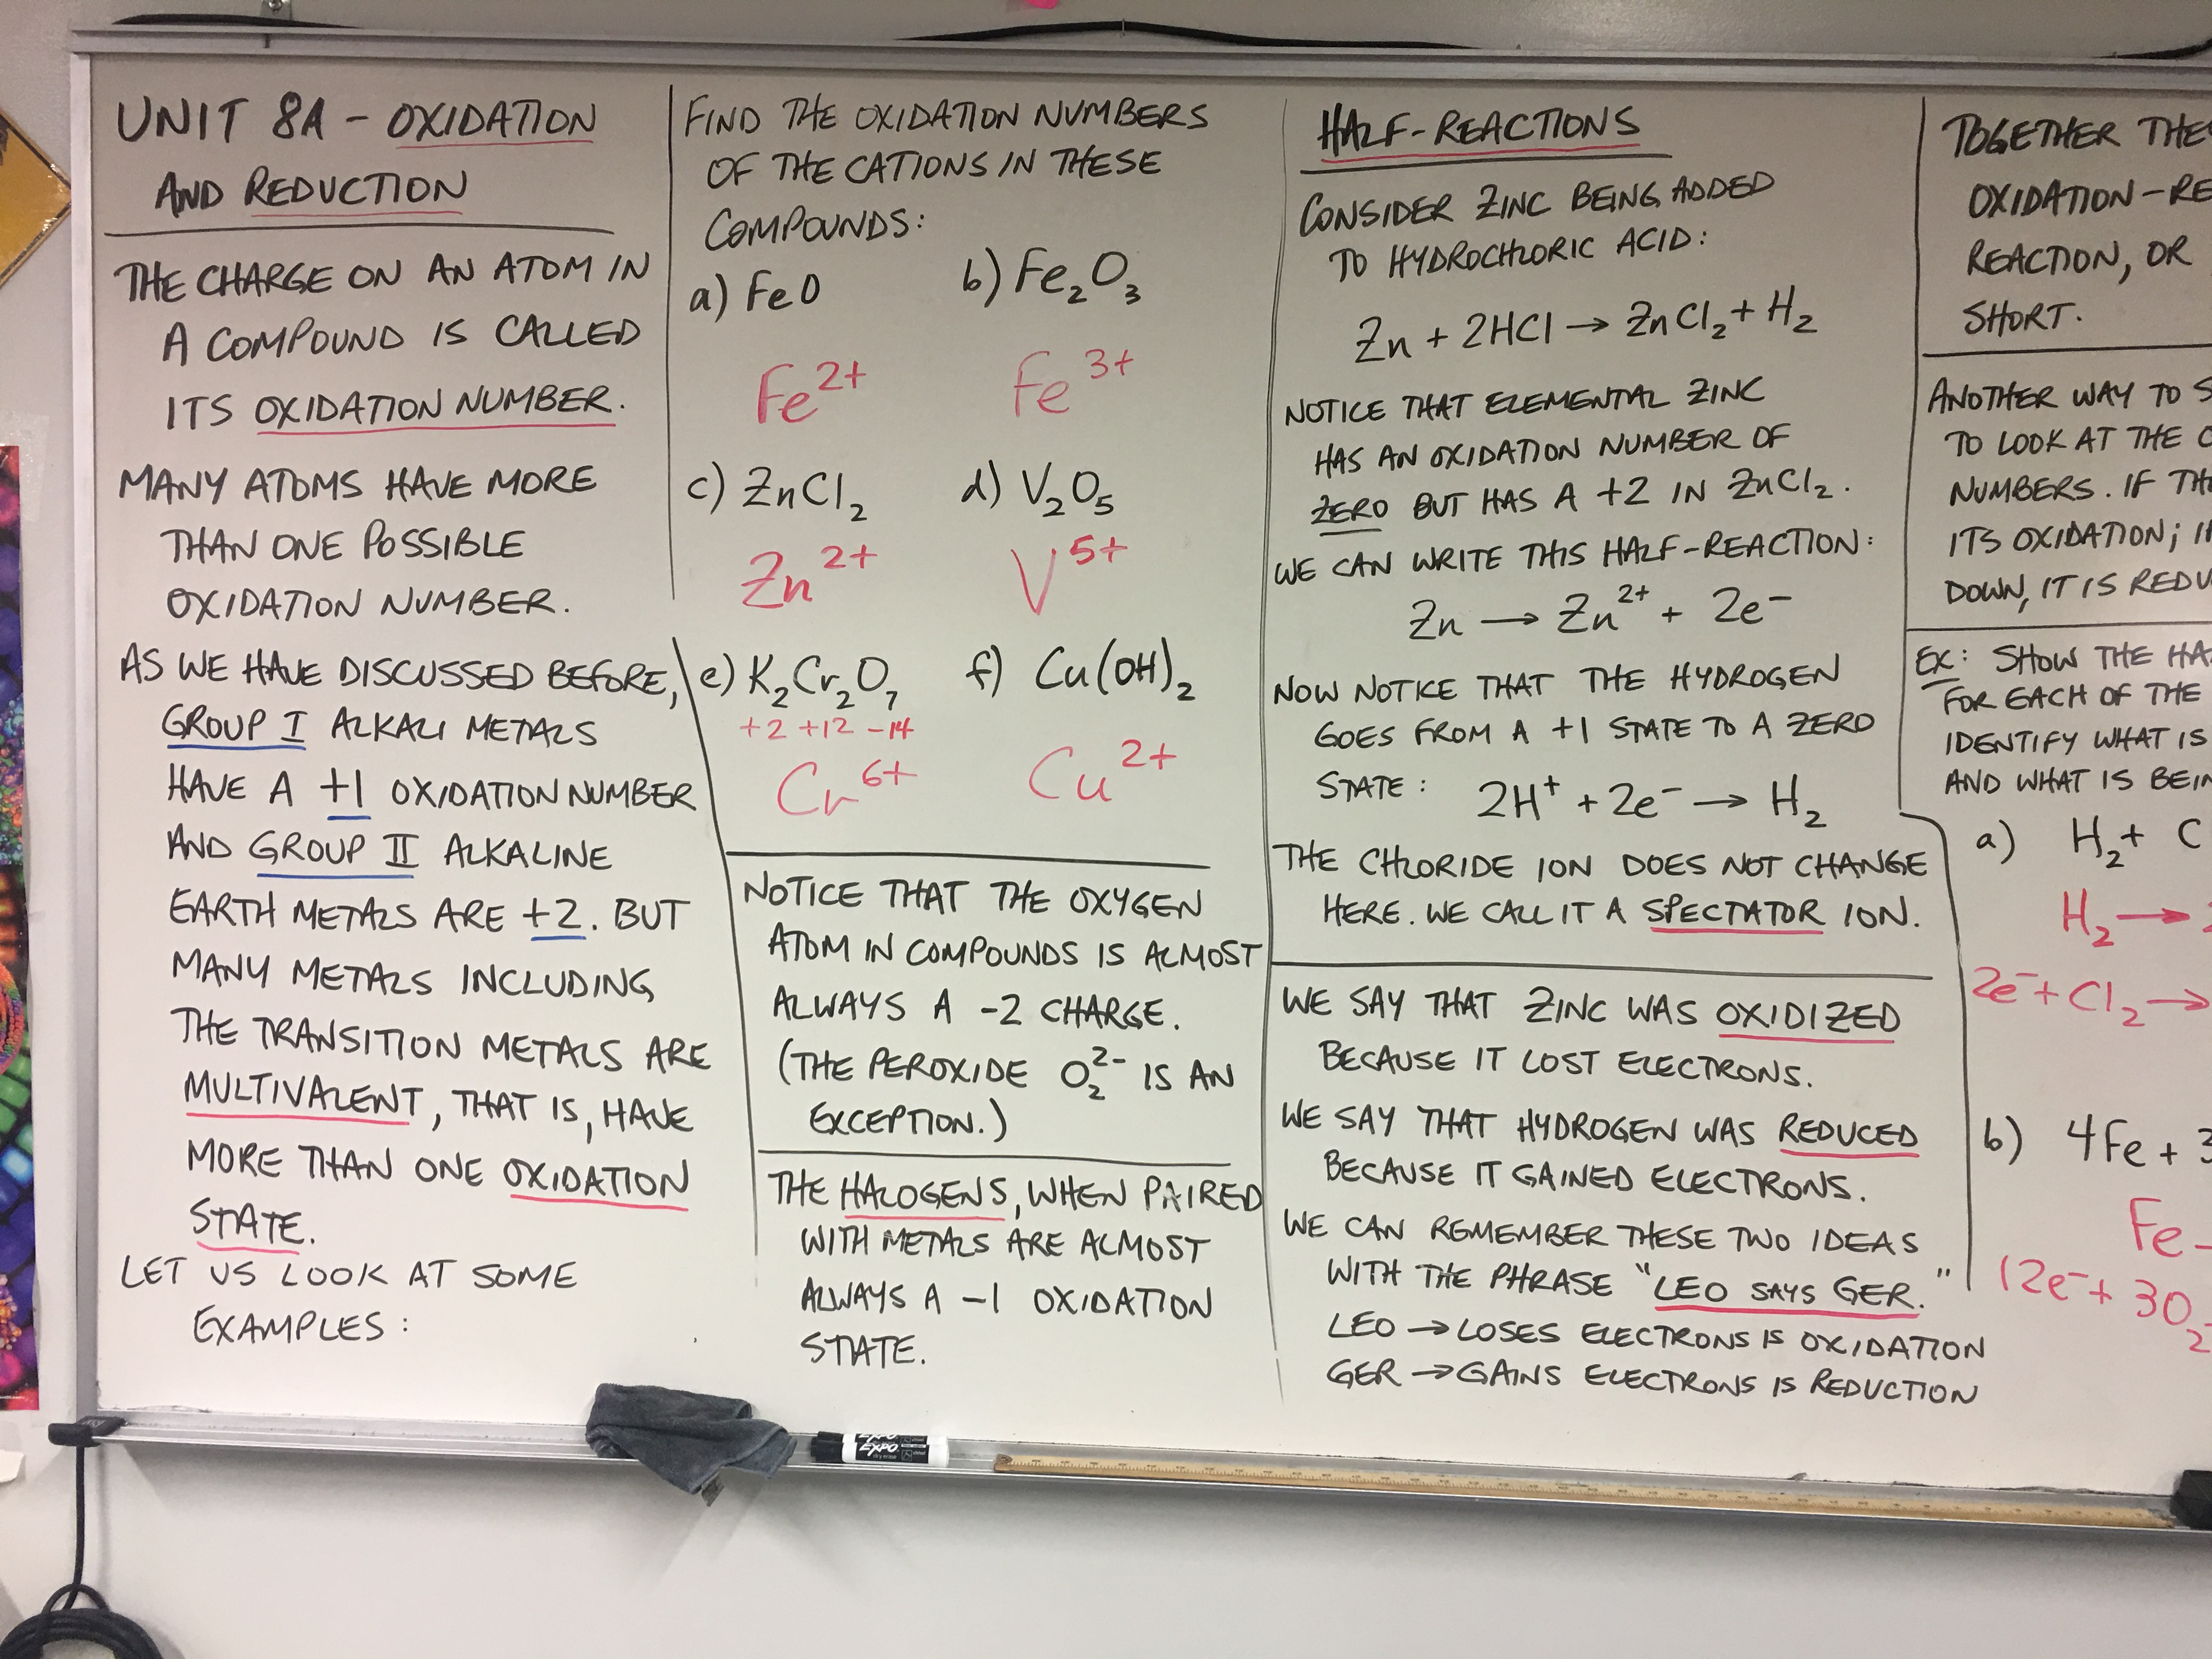 UNIT 8A - OXIDATION
AND REDUCTION
THE CHARGE ON AN ATOM IN
A COMPOUND IS CALLED
ITS OXIDATION NUMBER.
MANY ATOMS HAVE MORE
THAN ONE POSSIBLE
OXIDATION NUMBER.
AS WE HAVE DISCUSSED BEFORE,
GROUP I ALKALI METALS
HAVE A +1 OXIDATION NUMBER
AND GROUP II ALKALINE
EARTH METALS ARE +2. BUT
MANY METALS INCLUDING
THE TRANSITION METALS ARE
MULTIVALENT, THAT IS, HAVE
MORE THAN ONE OXIDATION
STATE.
LET US LOOK AT SOME
EXAMPLES:
FIND THE OXIDATION NUMBERS
OF THE CATIONS IN THESE
COMPOUNDS:
a) FeO b) Fe₂O₃
Fe²⁺ Fe³⁺
c) ZnCl₂ d) V₂O₅
Zn²⁺ V⁵⁺
e) K₂Cr₂O₇ f) Cu(OH)₂
+2 +12 -14
Cr⁶⁺ Cu²⁺
NOTICE THAT THE OXYGEN
ATOM IN COMPOUNDS IS ALMOST
ALWAYS A -2 CHARGE.
(THE PEROXIDE O₂²⁻ IS AN
EXCEPTION.)
THE HALOGENS, WHEN PAIRED
WITH METALS ARE ALMOST
ALWAYS A -1 OXIDATION
STATE.
HALF-REACTIONS
CONSIDER ZINC BEING ADDED
TO HYDROCHLORIC ACID:
Zn + 2HCl → ZnCl₂ + H₂
NOTICE THAT ELEMENTAL ZINC
HAS AN OXIDATION NUMBER OF
ZERO BUT HAS A +2 IN ZnCl₂.
WE CAN WRITE THIS HALF-REACTION:
Zn → Zn²⁺ + 2e⁻
NOW NOTICE THAT THE HYDROGEN
GOES FROM A +1 STATE TO A ZERO
STATE: 2H⁺ + 2e⁻ → H₂
THE CHLORIDE ION DOES NOT CHANGE
HERE. WE CALL IT A SPECTATOR ION.
WE SAY THAT ZINC WAS OXIDIZED
BECAUSE IT LOST ELECTRONS.
WE SAY THAT HYDROGEN WAS REDUCED
BECAUSE IT GAINED ELECTRONS.
WE CAN REMEMBER THESE TWO IDEAS
WITH THE PHRASE "LEO SAYS GER."
LEO → LOSES ELECTRONS IS OXIDATION
GER → GAINS ELECTRONS IS REDUCTION
TOGETHER THE
OXIDATION-RE
REACTION, OR
SHORT.
ANOTHER WAY TO S
TO LOOK AT THE O
NUMBERS. IF TH
ITS OXIDATION; I
DOWN, IT IS REDU
EX: SHOW THE HA
FOR EACH OF THE
IDENTIFY WHAT IS
AND WHAT IS BEIN
a) H₂ + C
H₂ →
2e⁻ + Cl₂ →
b) 4Fe + 3
Fe
12e⁻ + 3O₂
EXPO